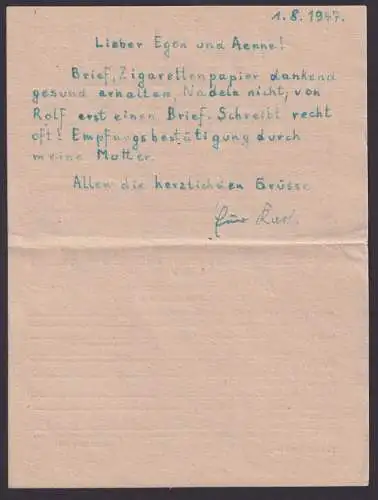 1.8.1947.
Lieber Egon und Aenne!
Brief, Zigarettenpapier dankend
gesund erhalten, Nadeln nicht, von
Rolf erst einen Brief. Schreibt recht
oft! Empfangsbestätigung durch
meine Mutter.
Allen die herzlichsten Grüsse